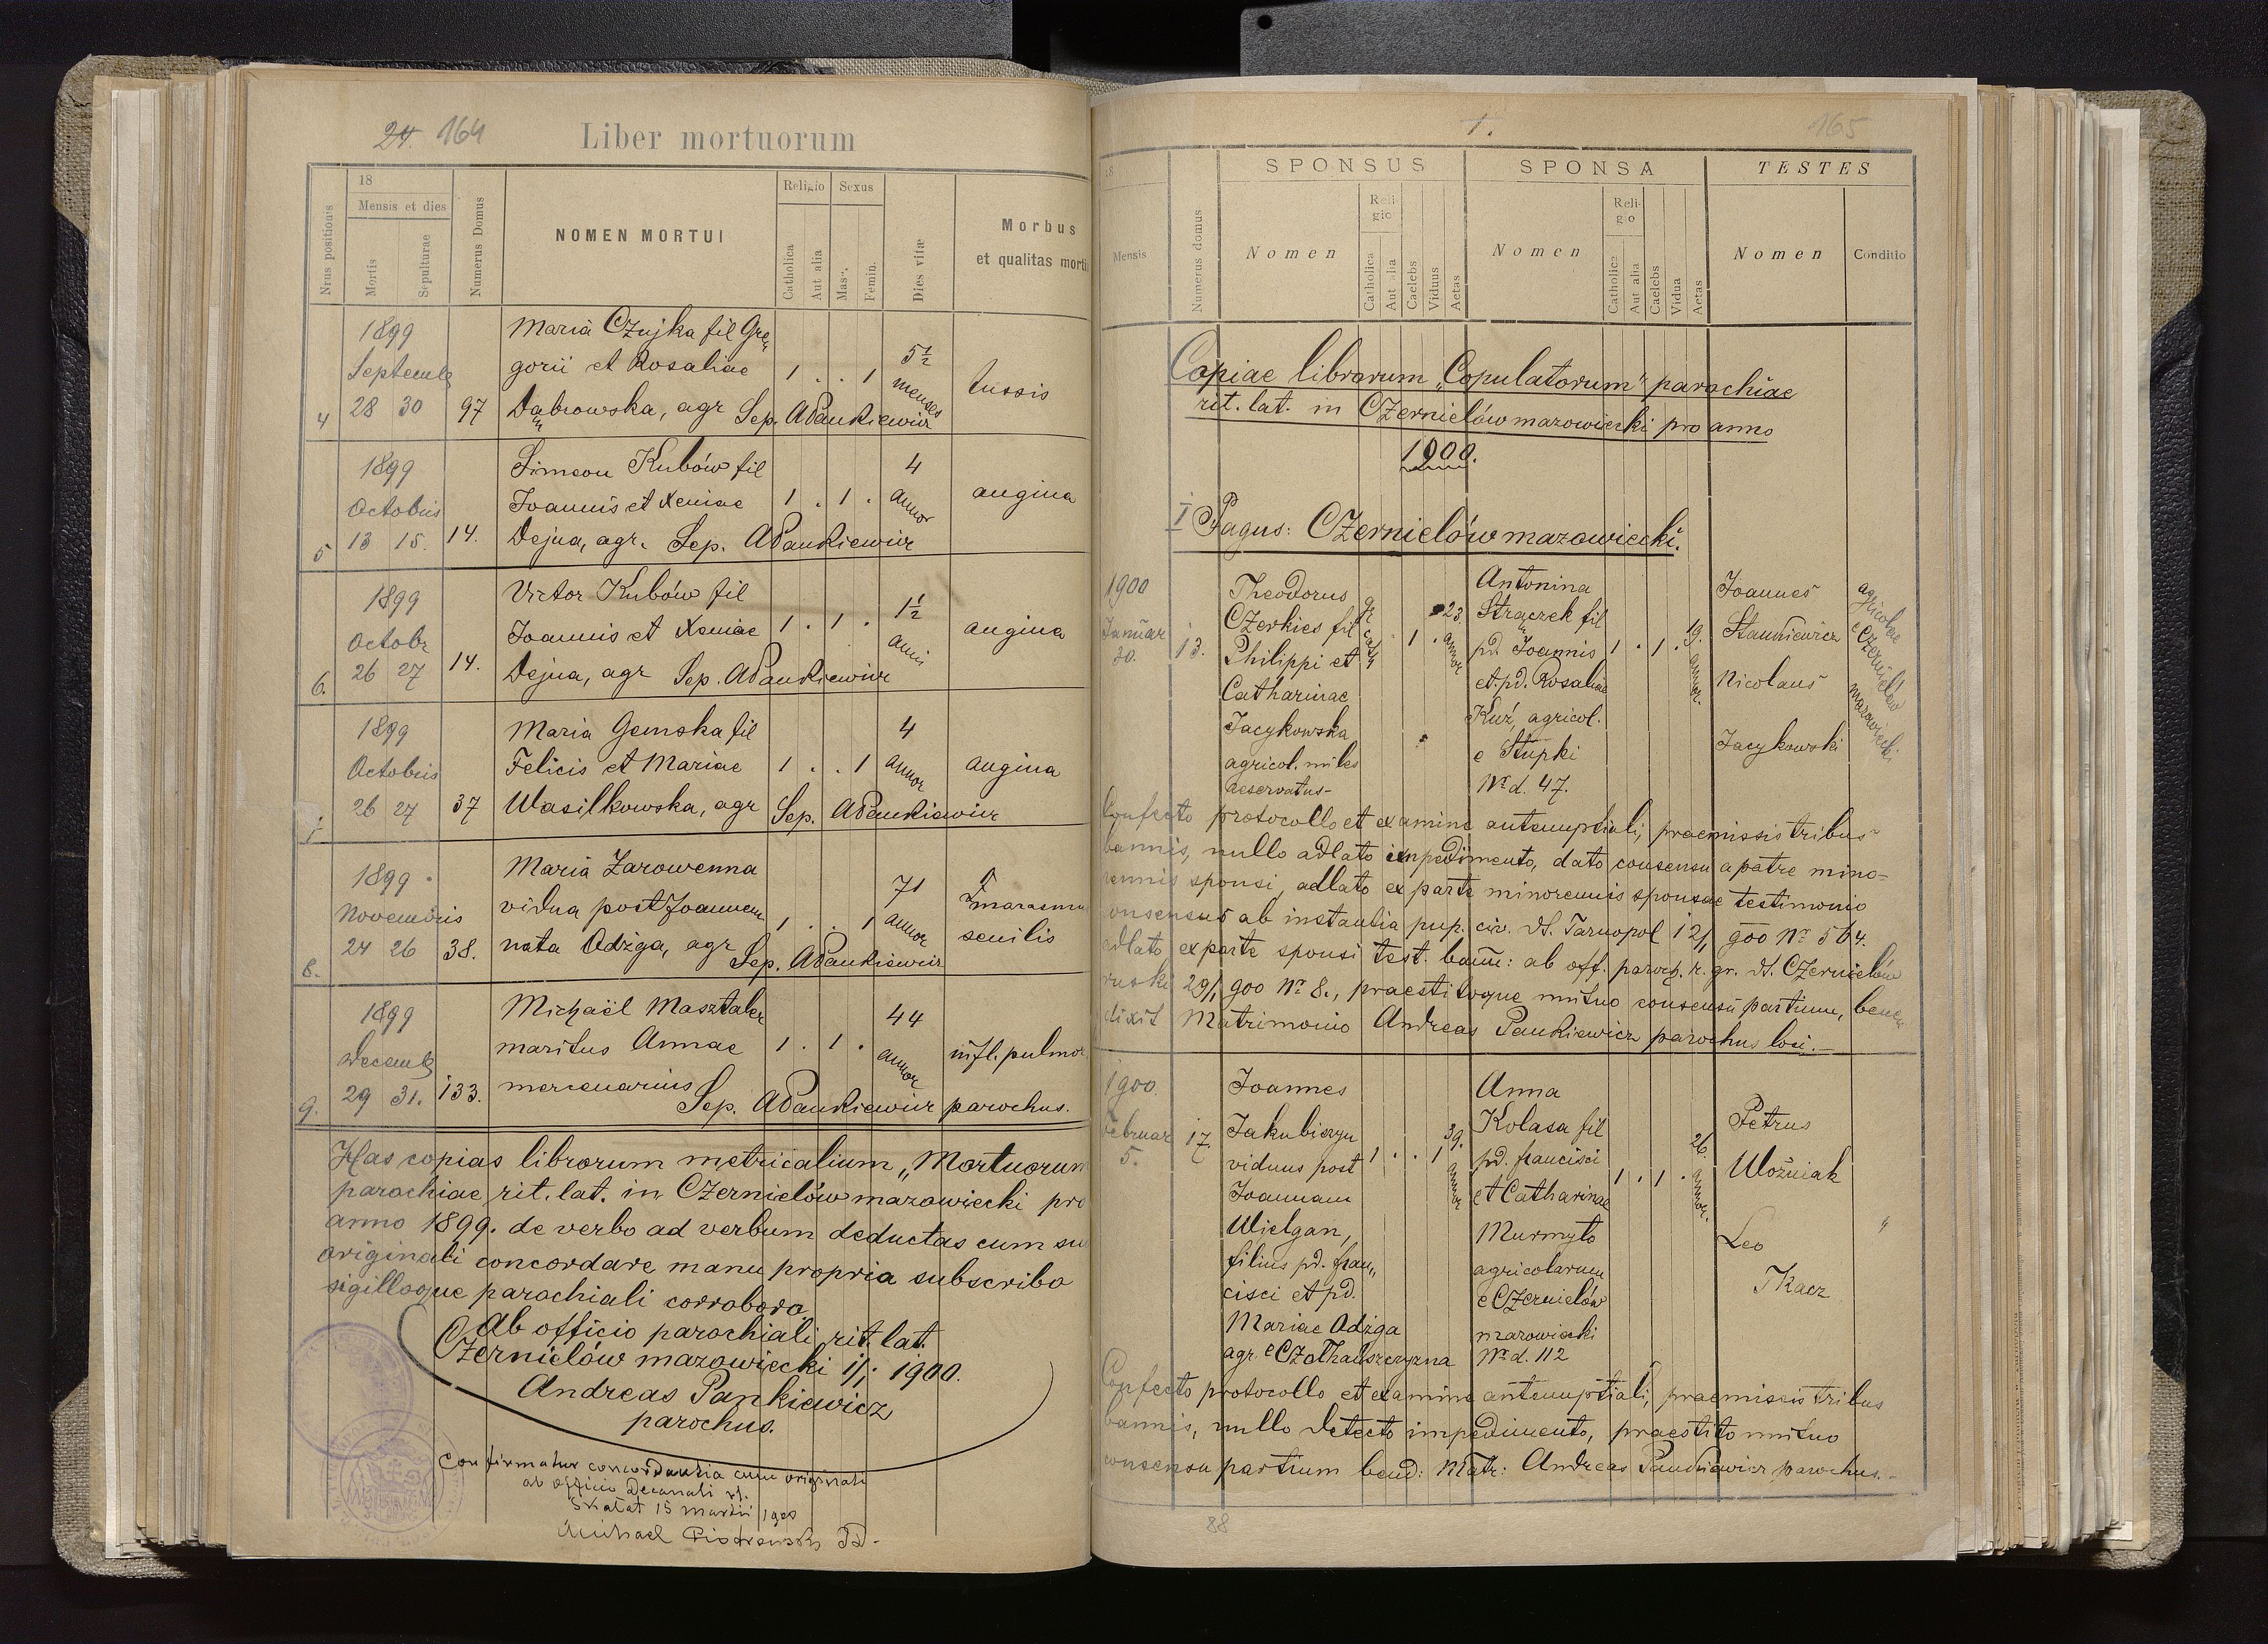 24. 164
Liber mortuorum
Nrus positionis
18
Mensis et dies
Mortis
Sepulturae
Numerus Domus
NOMEN MORTUI
Religio
Catholica
Aut alia
Sexus
Masc.
Femin.
Dies vitæ
Morbus
et qualitas morti
1899
Septemb
4 28 30 97
Maria Czujka fil Gre„
gorii et Rosaliae
Dąbrowska, agr Sep. APankiewicz
1 . . 1
5½
menses
tussis
1899
Octobris
5 13 15. 14.
Simeon Kubów fil
Joannis et Xeniae
Dejna, agr. Sep. APankiewicz
1 . 1 .
4
annor
angina
1899
Octobr
6. 26 27 14.
Victor Kubów fil
Joannis et Xeniae
Dejna, agr Sep. APankiewicz
1 . 1 .
1½
anni
angina
1899
Octobris
7. 26 27 37
Maria Gemska fil
Felicis et Mariae
Wasilkowska, agr Sep. APankiewicz
1 . . 1
4
annor
angina
1899
Novembris
8. 24 26 38.
Maria Zarowenna
vidua post Joannem
nata Odżga, agr Sep. APankiewicz
1 . . 1
71
annor
marasmu
senilis
1899
Decemb
9. 29 31. 133.
Michaël Masztaler
maritus Annae
mercenarius Sep. APankiewicz parochus.
1 . 1 .
44
annor
infl. pulmo
Has copias librorum metricalium „Mortuorum
parochiae rit. lat. in Czernielów mazowiecki pro
anno 1899. de verbo ad verbum deductas cum su
originali concordare manu propria subscribo
sigilloque parochiali corroboro
Ab officio parochiali rit. lat.
Czernielów mazowiecki 1/1 1900.
Andreas Pankiewicz
parochus.
Confirmatur concordantia cum originali
ab officio Decanali rl.
Skałat 15 martii 1900
Michael
1.
165
18
Mensis
Numerus domus
SPONSUS
Nomen
Reli-
gio
Catholica
Aut alia
Caelebs
Viduus
Aetas
SPONSA
Nomen
Reli-
gio
Catholica
Aut alia
Caelebs
Vidua
Aetas
TESTES
Nomen
Conditio
Copiae librorum „Copulatorum" parochiae
rit. lat. in Czernielów mazowiecki pro anno
1900.
I Pagus: Czernielów mazowiecki.
1900
Januar
30.
13.
Theodorus
Czerkies fil
Philippi et
Catharinae
Jacykowska
agricol. miles
reservatus-
gr cath
1 .
23.
annor
Antonina
Strączek fil
pd Joannis
et pd. Rosaliae
Kuź, agricol.
e Stupki
Nr d. 47.
1 . 1 .
19.
annor.
Joannes
Stankiewicz
Nicolaus
Jacykowski
agricolae
e Czernielów
mazowiecki
Confecto protocollo et examine antenuptiali, praemissis tribus
bannis, nullo adlato impedimento, dato consensu a patre mino-
rennis sponsi, adlato ex parte minorennis sponsae testimonio
consensus ab instantia pup. civ. dt. Tarnopol 12/1 900 Nr 564.
adlato ex parte sponsi test. bann: ab off. paroch. r. gr. dt. Czernielów
ruski 29/1 900 Nr 8., praestitoque mutuo consensu partium, bene„
dixit Matrimonio Andreas Pankiewicz parochus loci.-
1900.
Februar
5.
17.
Joannes
Jakubiszyn
viduus post
Joannam
Wielgan,
filius pd. fran„
cisci et pd.
Mariae Odżga
agr. e Czołhańszczyzna
1 . . 1
39.
annor
Anna
Kolasa fil
pd. francisci
et Catharinae
Murmyło
agricolarum
e Czernielów
mazowiecki
Nr d. 112
1 . 1 .
26.
annor.
Petrus
Woźniak
Leo
Tkacz
"
Confecto protocollo et examine antenuptiali, praemissis tribus
bannis, nullo detecto impedimento, praestito mutuo
consensu partium bend: Matr: Andreas Pankiewicz parochus.-
88